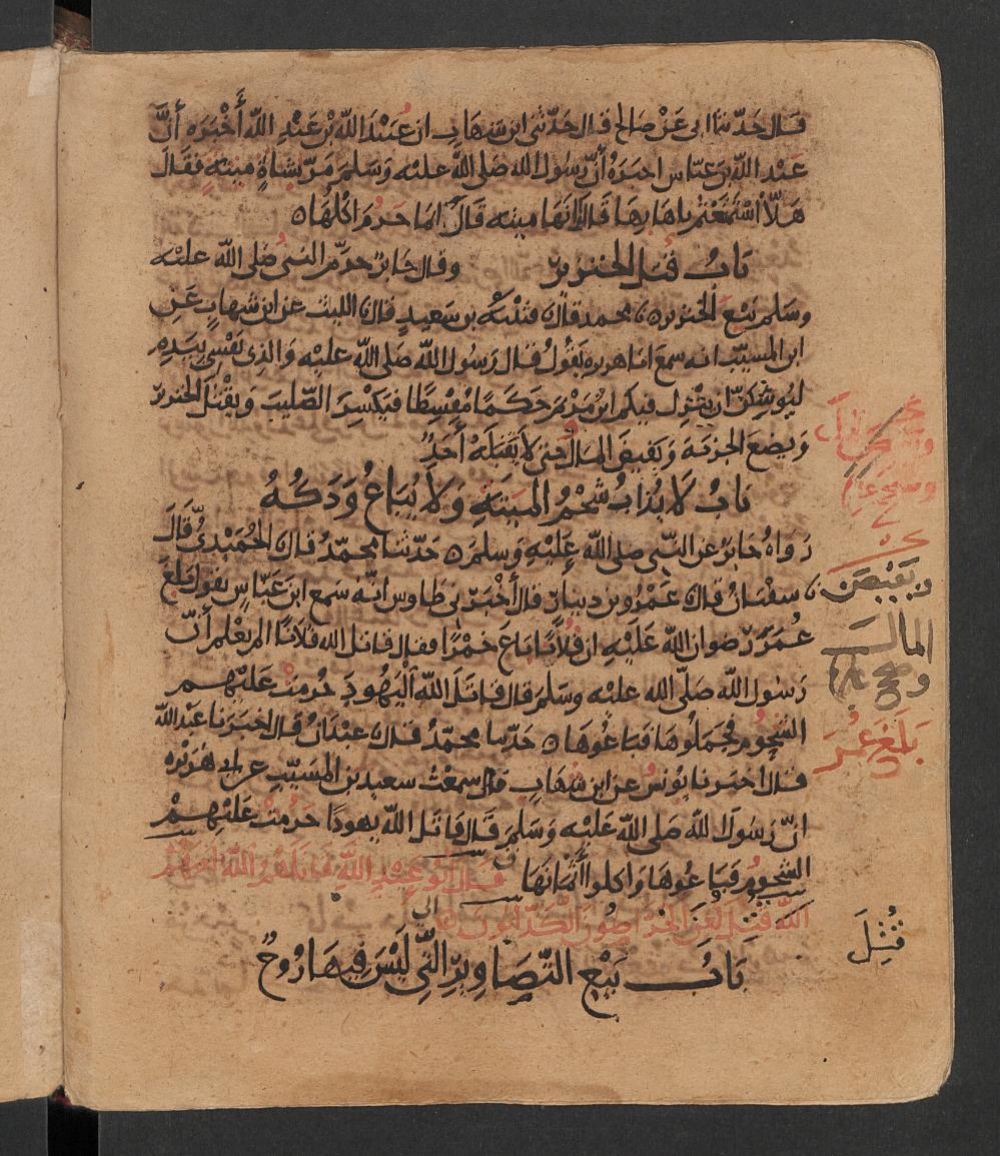 قال حدثنا ابى عن صالح قال حدثنى ابن شهاب ان عبيد الله بن عبد الله أخبره أن
عبد الله بن عباس اخبره أن رسول الله صلى الله عليه وسلم مر بشاة ميتة فقال
هلا استمتعتم باهابها قالوا انها ميته قال انما حرم اكلها
باب قتل الخنزير وقال جابر حرم النبي صلى الله عليه
وسلم بيع الخنزير محمد قال قتيبة بن سعيد قال الليث عن ابن شهاب عن
ابن المسيب انه سمع ابا هريره يقول قال رسول الله صلى الله عليه والذى نفسى بيده
ليوشكن ان ينزل فيكم ابن مريم حكما مقسطا فيكسر الصليب ويقتل الخنزير
ويضع الجزية ويفيض المال حتى لا يقبله أحد
باب لا يذاب شحم الميتة ولا يباع ودكه
رواه جابر عن النبي صلى الله عليه وسلم حدثنا محمد قال الحميدي قال
سفيان قال عمرو بن دينار قال أخبرنى طاوس انه سمع ابن عباس يقول بلغ
عمر رضوان الله عليه ان فلانا باع خمرا فقال قاتل الله فلانا الم يعلم أن
رسول الله صلى الله عليه وسلم قال قاتل الله اليهود حرمت عليهم
الشحوم فجملوها فباعوها حدثنا محمد قال عبدان قال اخبرنا عبد الله
قال اخبرنا يونس عن ابن شهاب قال سمعت سعيد بن المسيب عن ابى هريرة
ان رسول الله صلى الله عليه وسلم قال قاتل الله يهودا حرمت عليهم
الشحوم فباعوها واكلوا أثمانها قال ابو عبد الله قاتلهم الله لعنهم
الله قتل لعن الخراصون الكذابون
باب بيع التصاوير التى ليس فيها روح
ويفيض
المال
بلغ
قتل